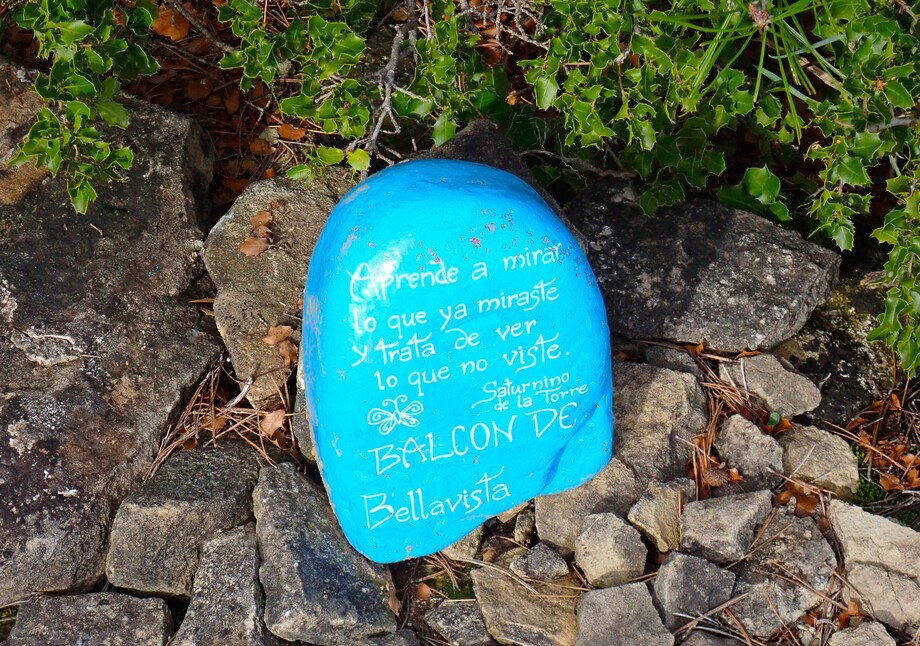 Aprende a mirar
lo que ya miraste
y trata de ver
lo que no viste.
Saturnino
de la Torre
BALCON DE
Bellavista